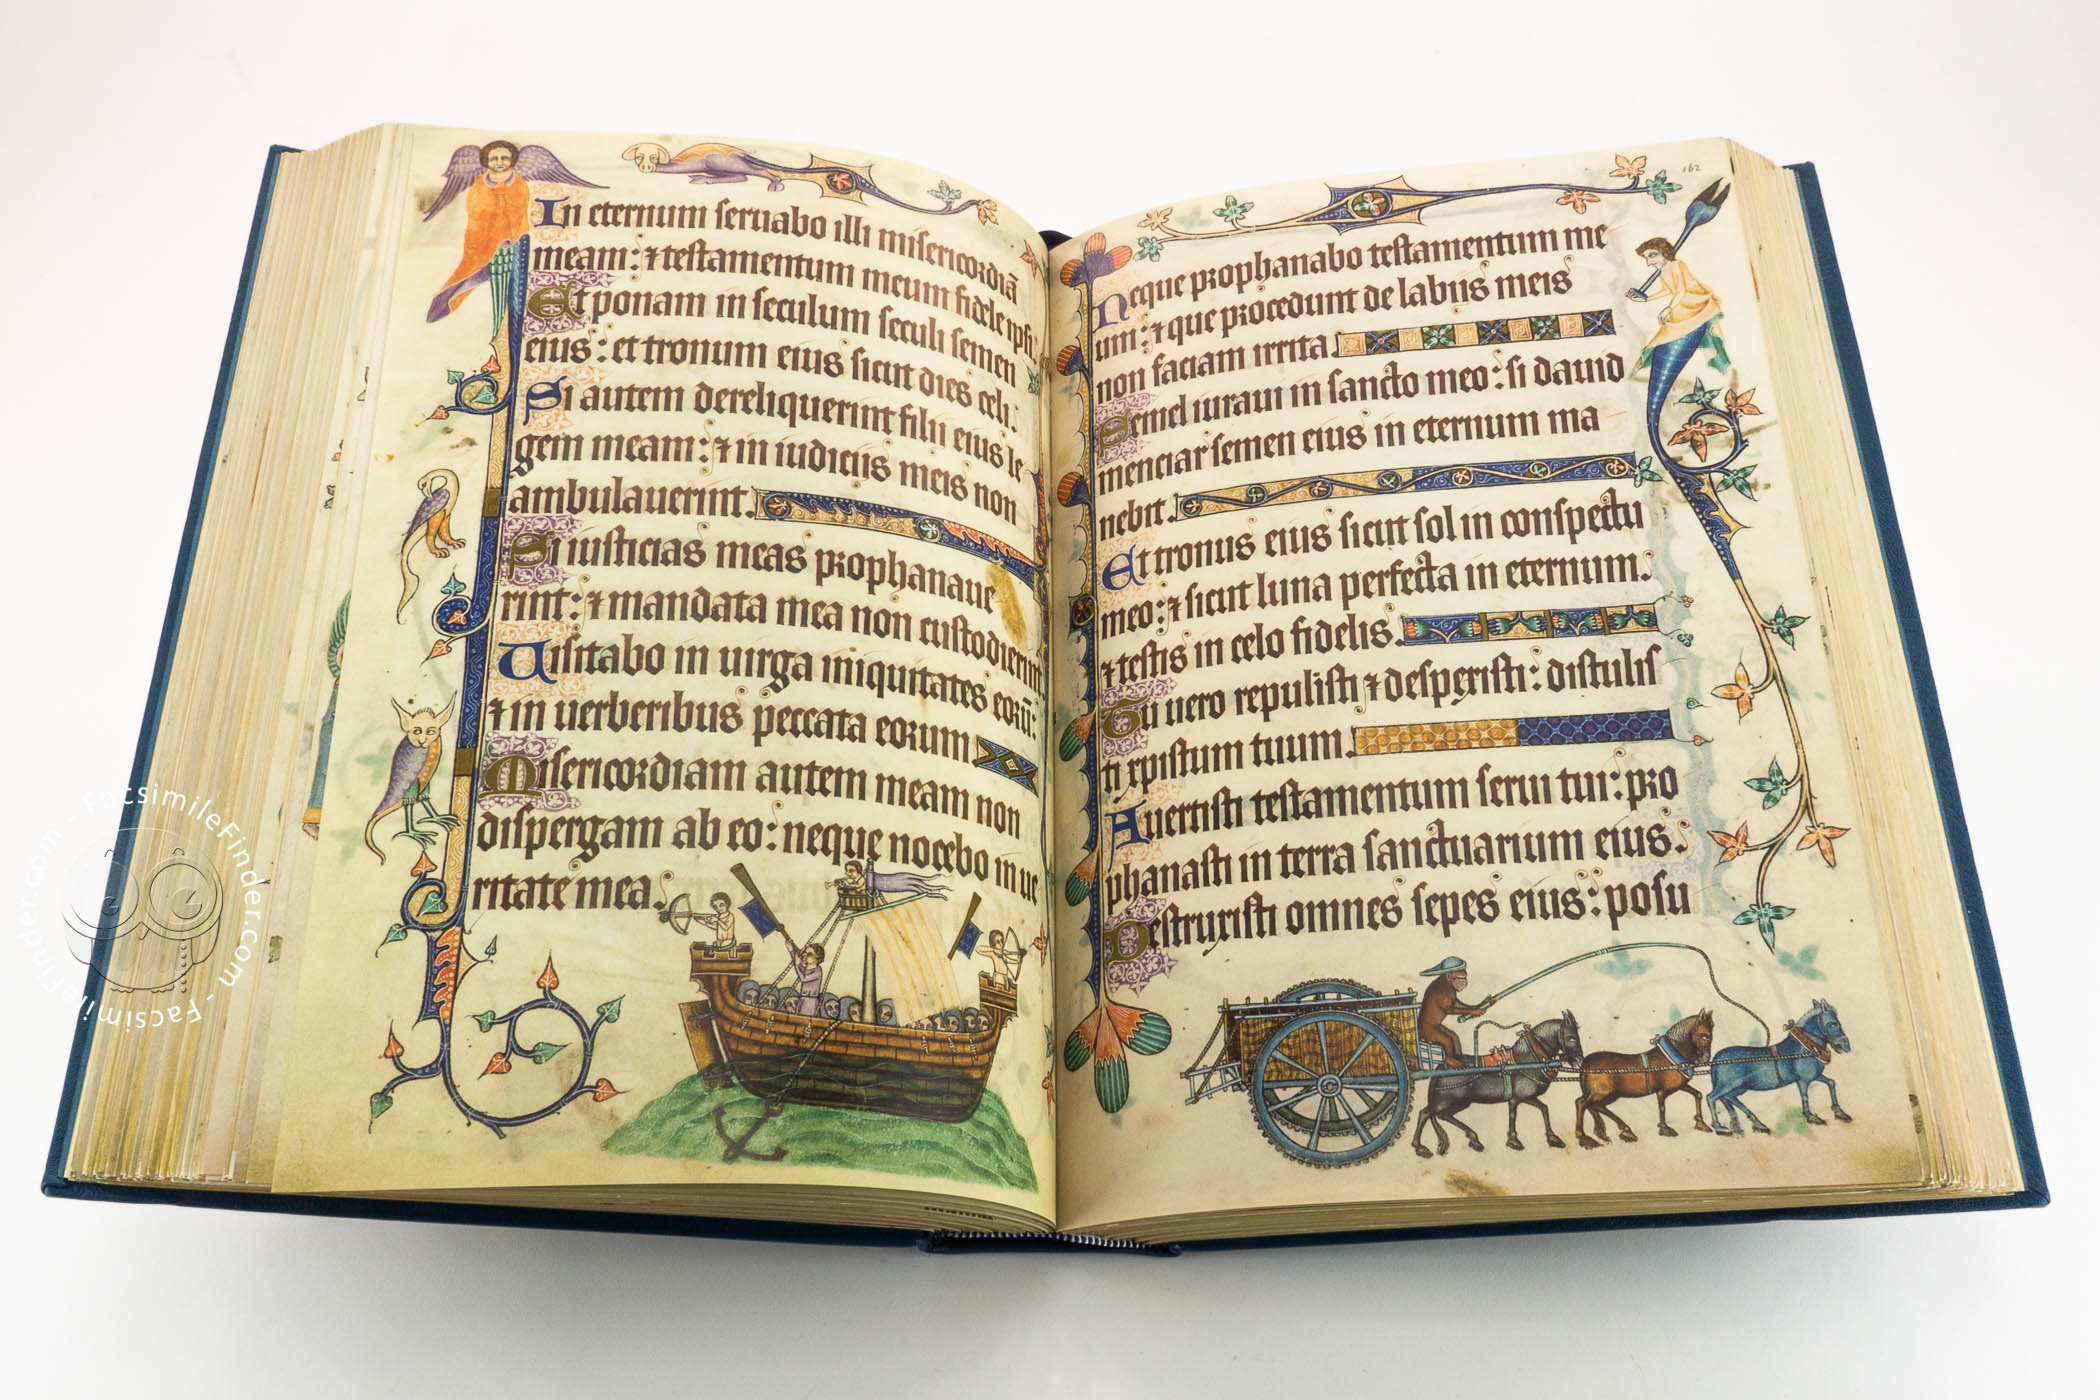 In eternum seruabo illi misericordiā
meam: ⁊ testamentum meum fidele ipsi.
Et ponam in seculum seculi semen
eius: et tronum eius sicut dies celi.
Si autem dereliquerint filii eius le
gem meam: ⁊ in iudiciis meis non
ambulauerint.
Si iusticias meas prophanaue
rint: ⁊ mandata mea non custodierint
Uisitabo in uirga iniquitates eorū:
⁊ in uerberibus peccata eorum
Misericordiam autem meam non
dispergam ab eo: neque nocebo in ue
ritate mea.
162
Neque prophanabo testamentum me
um: ⁊ que procedunt de labiis meis
non faciam irrita.
Semel iuraui in sancto meo: si dauid
menciar semen eius in eternum ma
nebit.
Et tronus eius sicut sol in conspectu
meo: ⁊ sicut luna perfecta in eternum:
⁊ testis in celo fidelis.
Tu uero repulisti ⁊ despexisti: distulis
ti xpistum tuum.
Auertisti testamentum serui tui: pro
phanasti in terra sanctuarium eius.
Destruxisti omnes sepes eius: posu
FacsimileFinder.com - FacsimileFinder.com